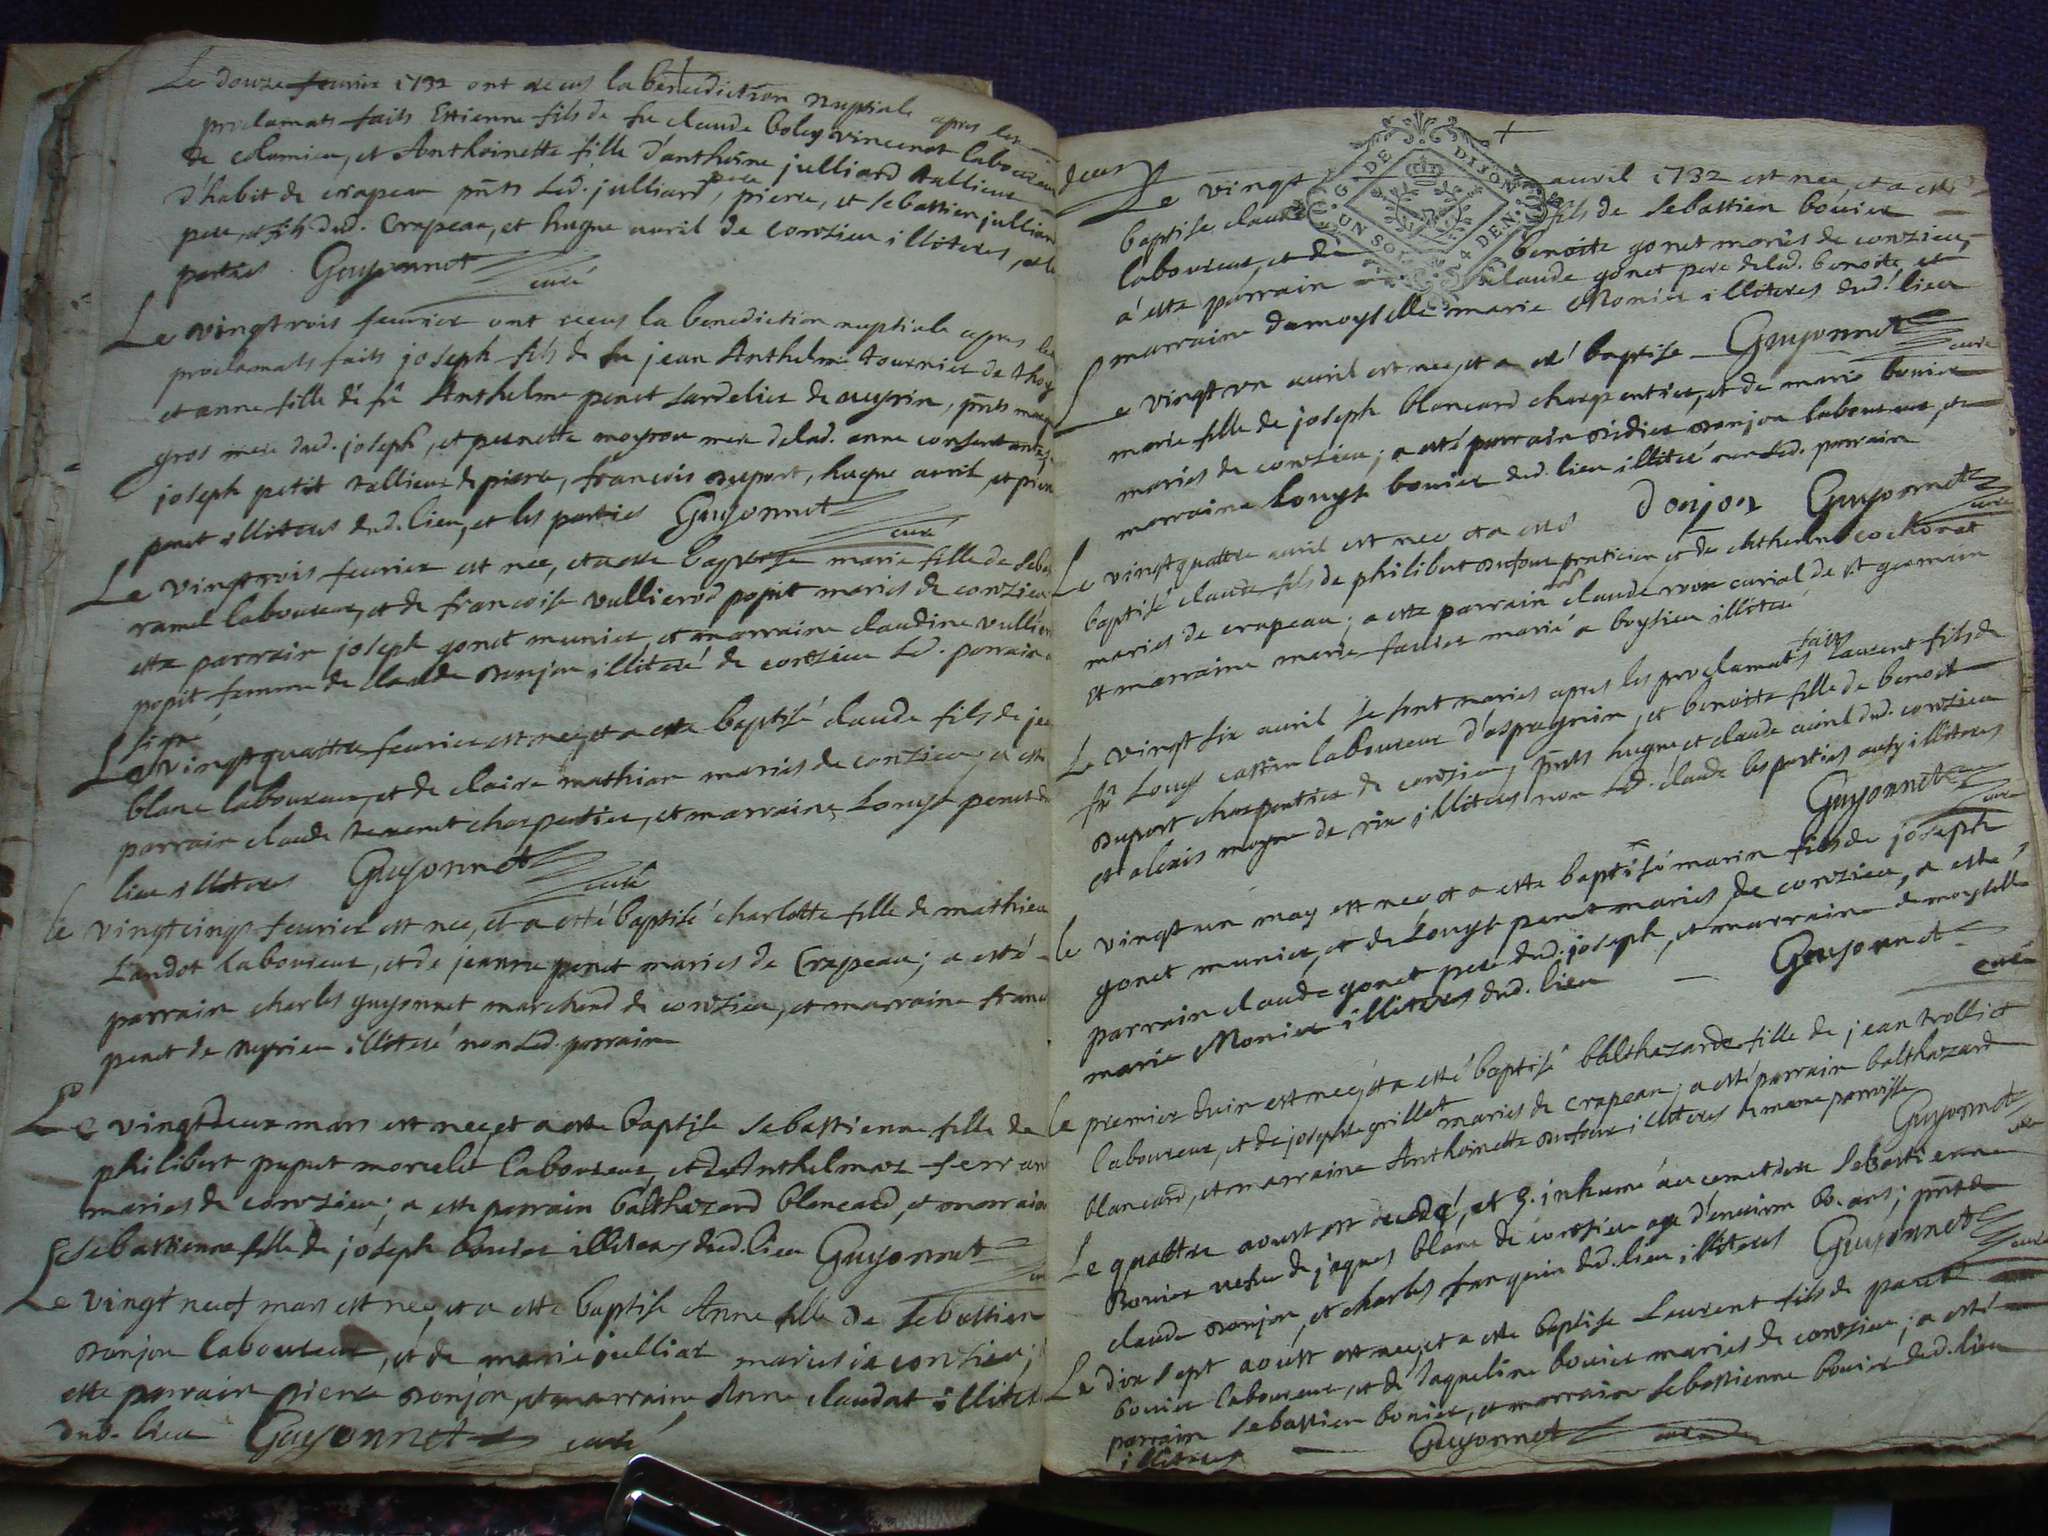 Le douze feurier 1732 ont receus la benediction nuptiale apres les
proclamats faits Estienne fils de fu claude boley vincenot laboureur
de colomieu, et Anthoinette fille d'anthoine julliard tallieur
d'habit de crapeau pnts led. julliard pere, pierre, et sebastien julliard
pere, et fils dud. Crapeau, et hugue auril de conzieu illiteres, et les
parties Guyonnet curé
Le vingtrois feurier ont receus la benediction nuptiale apres les
proclamats faits joseph fils de fu jean Anthelme tournier de
et anne fille de fu Anthelme penet de meyrin, pnts
gros mere dud. joseph, et pernette moyroux mere delad. anne consentantes,
joseph petit tallieur de pierre, françois duport, hugue auril, et pierre
penet illiteres dud. lieu, et les parties Guyonnet curé
Le vingtrois feurier est nee, et a esté baptisse marie fille de
ramel laboureur, et de francoise vullierod popit mariés de conzieu
esté parrain joseph gonet munier, et marraine claudine
popit femme de claude donjon illiteré de conzieu led. parrain a
signé
Le vingtquattre feurier est nee, et a esté baptisé claude fils de
blanc laboureur, et de claire mathian mariés de conzieu; a esté
parrain claude charpentier, et marraine Louyse penet
lieu illiteres Guyonnet curé
le vingtcinq feurier est nee, et a esté baptisé charlotte fille de mathieu
Landot laboureur, et de jeanne penet mariés de Crapeau; a esté
parrain charles guyonnet marchand de conzieu, et marraine
penet de illiteré non led. parrain
Le vingtdeux mars est nee, et a esté baptisé sebastienne fille de
philibert puput morcelet laboureur, et de Anthelmaz ferrand
mariés de conzieu; a esté parrain balthazard blancard, et marraine
Sebastienne fille de joseph bouier illiteres dud. lieu Guyonnet
Le vingt neuf mars est nee, et a esté baptisé Anne fille de sebastien
donjon laboureur, et de marie julliat mariés de conzieu;
esté parrain pierre donjon, et marraine Anne claudat
dud. lieu Guyonnet curé
GADE DIJON
UN SOL 4 DEN.
Le vingt deux auril 1732 est nee, et a esté
baptisé claude fils de sebastien bouier
laboureur, et de benoite gonet mariés de conzieu,
a esté parrain claude gonet pere delad. benoite, et
marraine damoyselle marie Monier illiteres dud. lieu
Guyonnet curé
Le vingt un auril est nee, et a esté baptisé
marie fille de joseph blancard charpentier, et de marie bouier
mariés de conzieu; a esté parrain didier donjon laboureur, et
marraine Louyse bouier dud. lieu illiteré non led. parrain
donjon Guyonnet curé
Le vingtquattre auril est nee et a esté
baptisé claude fils de philibert dufour praticien et de catherine cochonat
mariés de crapeau; a esté parrain claude roux curial de st germain
et marraine marie marié a boysieu illiteré
Le vingt six auril se sont mariés apres les proclamats faits Laurent fils de
fu Louys castin laboureur d'aspragnin, et benoitte fille de benoit
duport charpentier de conzieu, pnts hugue et claude auril dud. conzieu
et alexis moyne de rix illiteres non led. claude les parties aussy illiteres
Guyonnet curé
le vingt un may est nee et a esté baptisé marin fils de joseph
gonet munier, et de Louyse penet mariés de conzieu, a esté
parrain claude gonet pere dud. joseph, et marraine demoyselle
marie Monier illiteres dud. lieu Guyonnet curé
le premier Juin est nee, et a esté baptisé balthazarde fille de jean trolliet
laboureur, et de josephte grillet mariés de crapeau; a esté parrain balthazard
blancard, et marraine Anthoinette dufour illiteres de mesme parroisse
Guyonnet curé
Le quattre aoust est decedé, et inhumé au cemettiere sebastienne
Bouier vefue de jaques blanc de conzieu age d'enuiron ans; pnts
claude donjon, et charles dud. lieu illiteres Guyonnet curé
Le dix sept aoust est nee, et a esté baptisé Laurent fils de
bouier laboureur, et de jaqueline bouier mariés de conzieu; a esté
parrain sebastien bouier, et marraine sebastienne bouier dud. lieu
illiteres Guyonnet curé